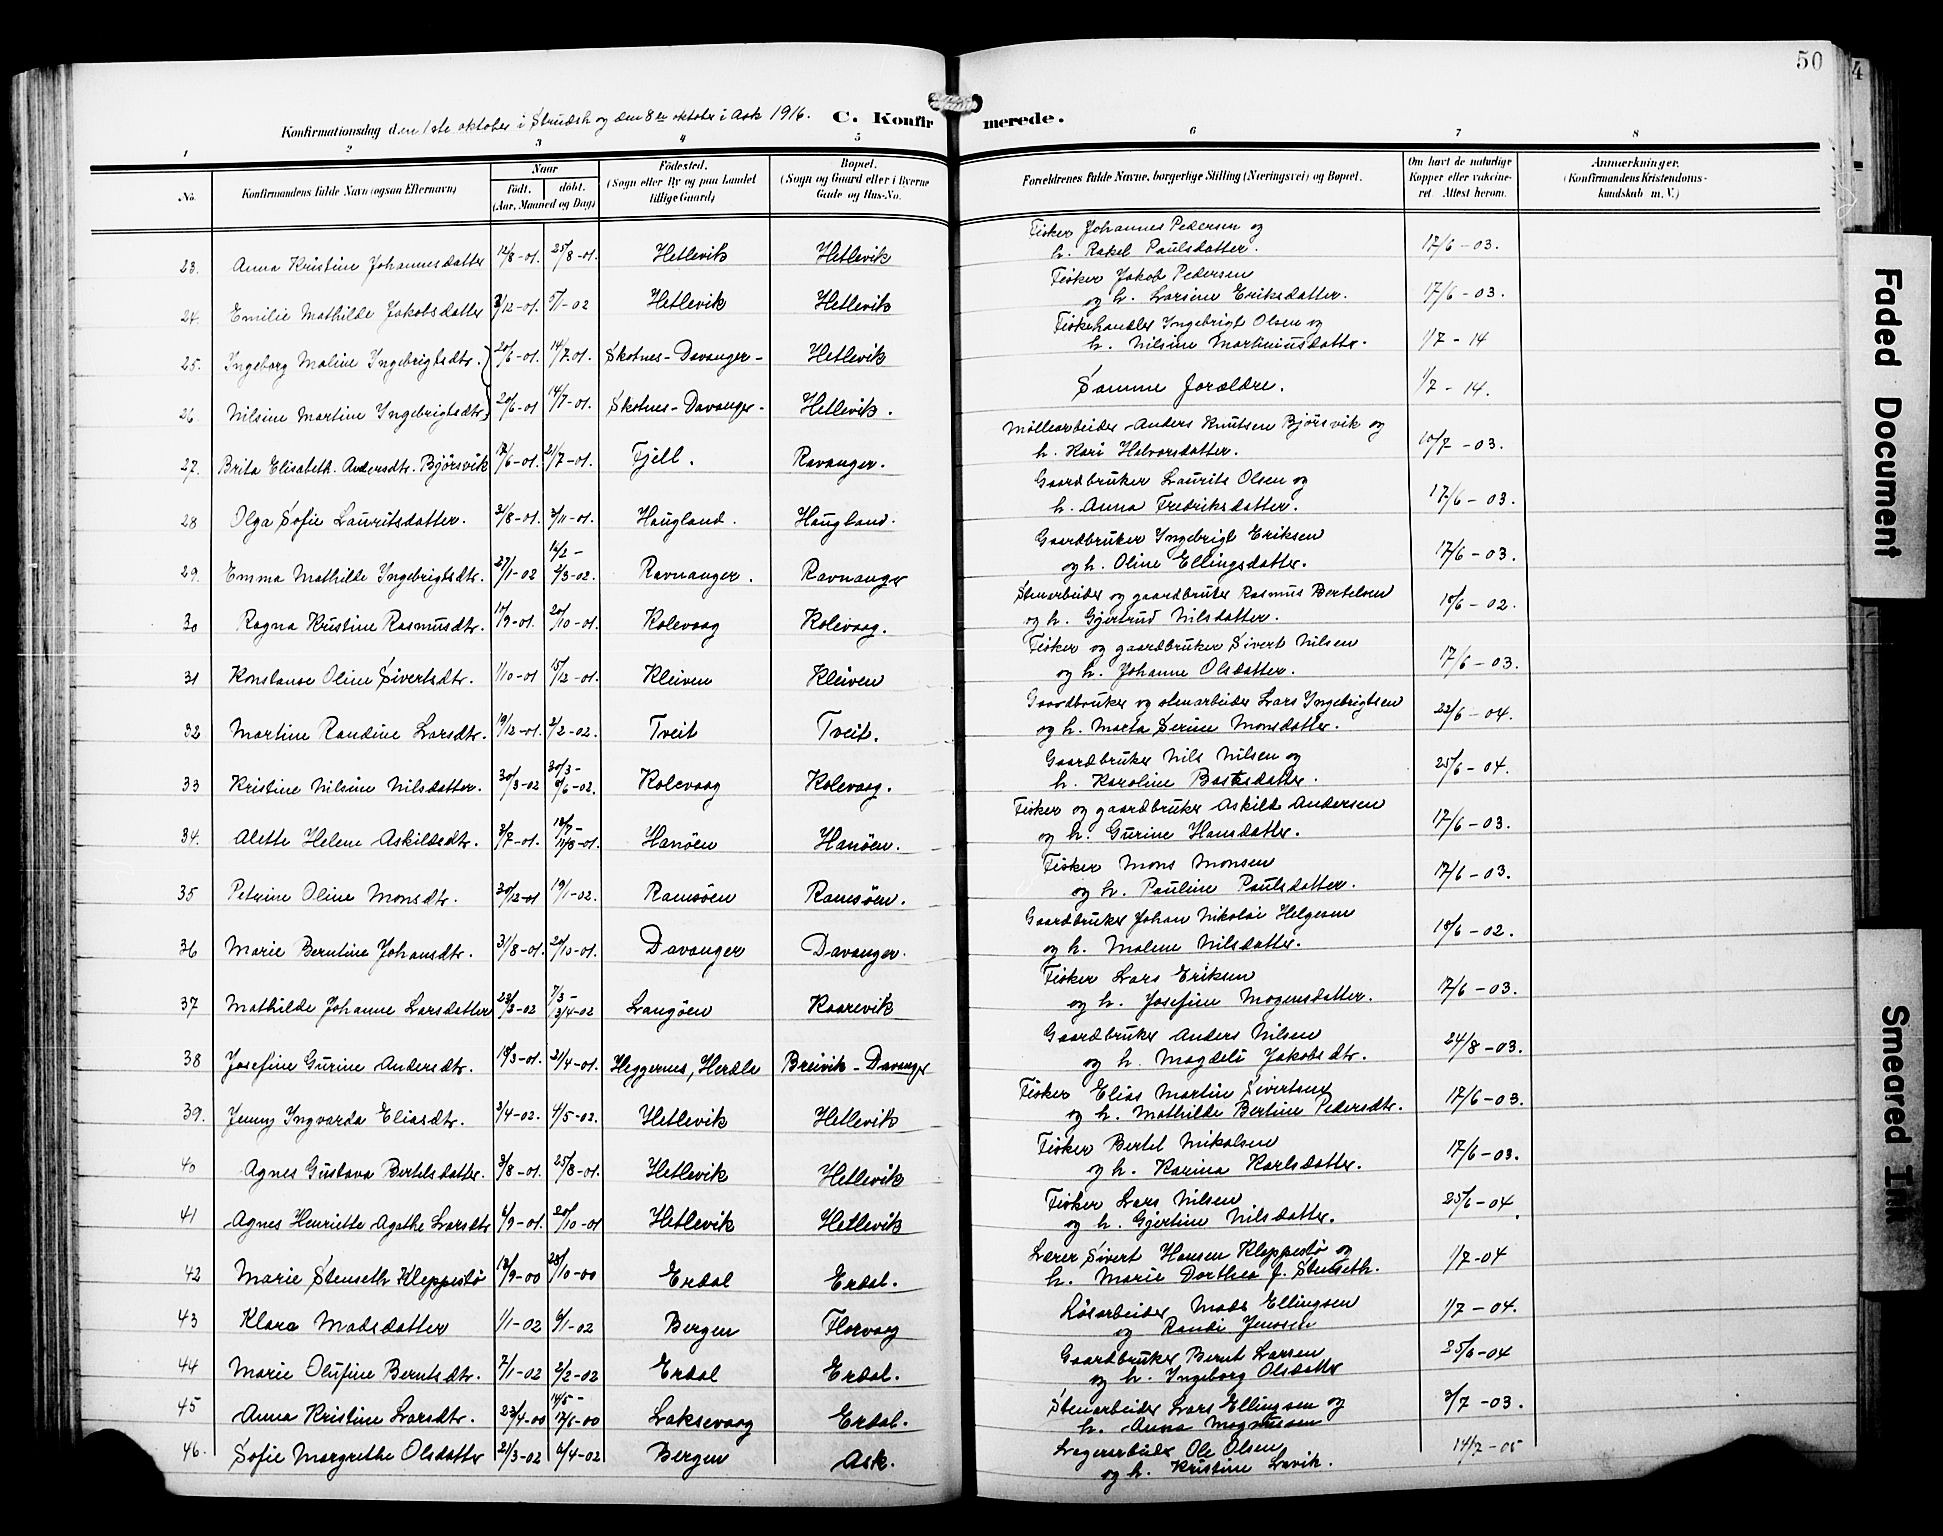 50
4
Konfirmationsdag den 1ste oktober i Strudsh og den 8de oktober i Ask 1916. C. Konfirmerede.
1 2 3 4 5 6 7 8
No. Konfirmandens fulde Navn (ogsaa Efternavn) Naar Født. døbt. (Aar, Maaned og Dag) Fødested. (Sogn eller By og paa Landet tillige Gaard) Bopæl. (Sogn og Gaard eller i Byerne Gade og Hus-No. Forældrenes fulde Navne, borgerlige Stilling (Næringsvei) og Bopæl. Om havt de naturlige Kopper eller vaccineret. Attest herom. Anmærkninger. (Konfirmandens Kristendomskundskab m. V.)
23. Anna Kristine Johannesdatter 12/8-01. 25/8-01. Hetlevik Hetlevik Fisker Johannes Pedersen og
h. Rakel Paulsdatter. 17/6-03.
24. Emilie Mathilde Jakobsdatter 3/12-01. 5/1-02 Hetlevik Hetlevik Fisker Jakob Pedersen
og h. Larsine Eriksdatter. 17/6-03.
25. Ingeborg Maline Ingebrigtsdtr. 20/6-01. 14/7.01. Skotnes-Davanger- Hetlevik Fiskehandler Ingebrigt Olsen og
h. Nilsine Martiniusdattr. 1/7-14
26. Nilsine Martine Ingebrigtsdtr. 20/6-01 14/7-01. Skotnes-Davanger- Hetlevik. Samme forældre. 1/7-14.
27. Brita Elisabeth Andersdtr. Bjørsvik 17/6-01. 21/7-01. Fjell. Ravanger. Møllearbeider Anders Knutsen Bjørsvik og
h. Kari Halvorsdatter. 10/7-03.
28 Olga Sofie Lauritsdatter. 31/8-01. 3/11-01. Haugland. Haugland. Gaardbruker Laurits Olsen og
h. Anna Fredriksdatter. 17/6-03.
29. Emma Mathilde Ingebrigtsdtr. 27/1-02 16/2-
2/3-02. Ravnanger. Ravnanger Gaardbruker Ingebrigt Eriksen
og h. Oline Ellingsdatter. 17/6-03.
30 Ragna Kristine Rasmusdtr. 10/9-01. 20/10-01. Kolevaag Kolevaag. Stenarbeider og gaardbruker Rasmus Bertelsen
og h. Gjertrud Nilsdatter. 18/6-02.
31 Konstanse Oline Sivertsdtr. 1/10-01 15/12-01. Kleiven Kleiven Fisker og gaardbruker Sivert Nilsen
og h. Johanne Olsdatter. 17/6-03.
32 Martine Randine Larsdtr. 19/12-01. 2/2-02. Tveit Tveit. Gaardbruker og stenarbeider Lars Ingebrigtsen
og h. Marta Serine Monsdatter. 22/6-04.
33 Kristine Nilsine Nilsdatter. 30/3-02 30/3-
8/6-02. Kolevaag Kolevaag. Gaardbruker Nils Nilsen og
h. Karoline Baskesdatter. 25/6-04.
34. Alette Helene Askildsdtr. 3/7-01. 12/7-
11/8-01. Hanøen Hanøen. Fisker og gaardbruker Askild Andersen
og h. Gurine Hansdatter. 17/6-03.
35 Petrine Oline Monsdtr. 30/12-01 19/1-02. Ramsøen Ramsøen. Fisker Mons Monsen
og h. Pauline Paulsdatter. 17/6-03.
36 Marie Berntine Johansdtr. 31/8-01. 20/10-01. Davanger Davanger. Gaardbruker Johan Nikolai Helgesen
og h. Malene Nilsdatter. 18/6-02.
37 Mathilde Johanne Larsdatter 23/3-02 7/3-
3/4-02 Langøen Kaarevik Fisker Lars Eriksen
og h. Josefine Mogensdatter. 17/6-03.
38 Josefine Gurine Andersdtr. 18/3-01. 21/4-01. Heggernes, Herdla Breivik-Davanger Gaardbruker Anders Nilsen
og h. Magdeli Jakobsdtr. 24/8-03.
39. Jenny Ingvarda Eliasdtr. 3/4-02. 4/5-02. Hetlevik Hetlevik Fisker Elias Martin Sivertsen
og h. Mathilde Bertine Pedersdtr. 17/6-03.
40 Agnes Gustava Bertelsdatter. 3/8-01. 25/8-01. Hetlevik Hetlevik Fisker Bertel Mikalsen
og h. Karina Karlsdatter. 17/6-03.
41 Agnes Henriette Agathe Larsdtr 8/9-01. 20/10-01 Hetlevik Hetlevik Fisker Lars Nilsen
og h. Gjertine Nilsdatter. 25/6-04.
42 Marie Stenseth Kleppestø 12/9-00 28/10-00 Erdal Erdal. Lærer Sivert Hansen Kleppestø og
h. Marie Dorthea f. Stenseth. 1/7-04
43 Klara Madsdatter 1/1-02 6/1-02 Bergen Florvaag Løsarbeider Mads Ellingsen
og Randi Jenssen 1/7-04.
44 Marie Olufine Berntsdtr. 7/1-02 2/2-02 Erdal Erdal. Gaardbruker Bernt Larsen
og h. Ingeborg Olsdatter 25/6-04
45 Anna Kristine Larsdtr. 23/4-00 14/5-
17/6-00 Laksevaag Erdal. Stenarbeider Lars Ellingsen og
h. Anna Magnussen 3/7-03.
46. Sofie Margrethe Olsdatter 21/3-02 6/4-02 Bergen Ask. Lagerarbeider Ole Olsen
og h. Kristine Lavik. 14/2-05
Faded Document
Smeared Ink